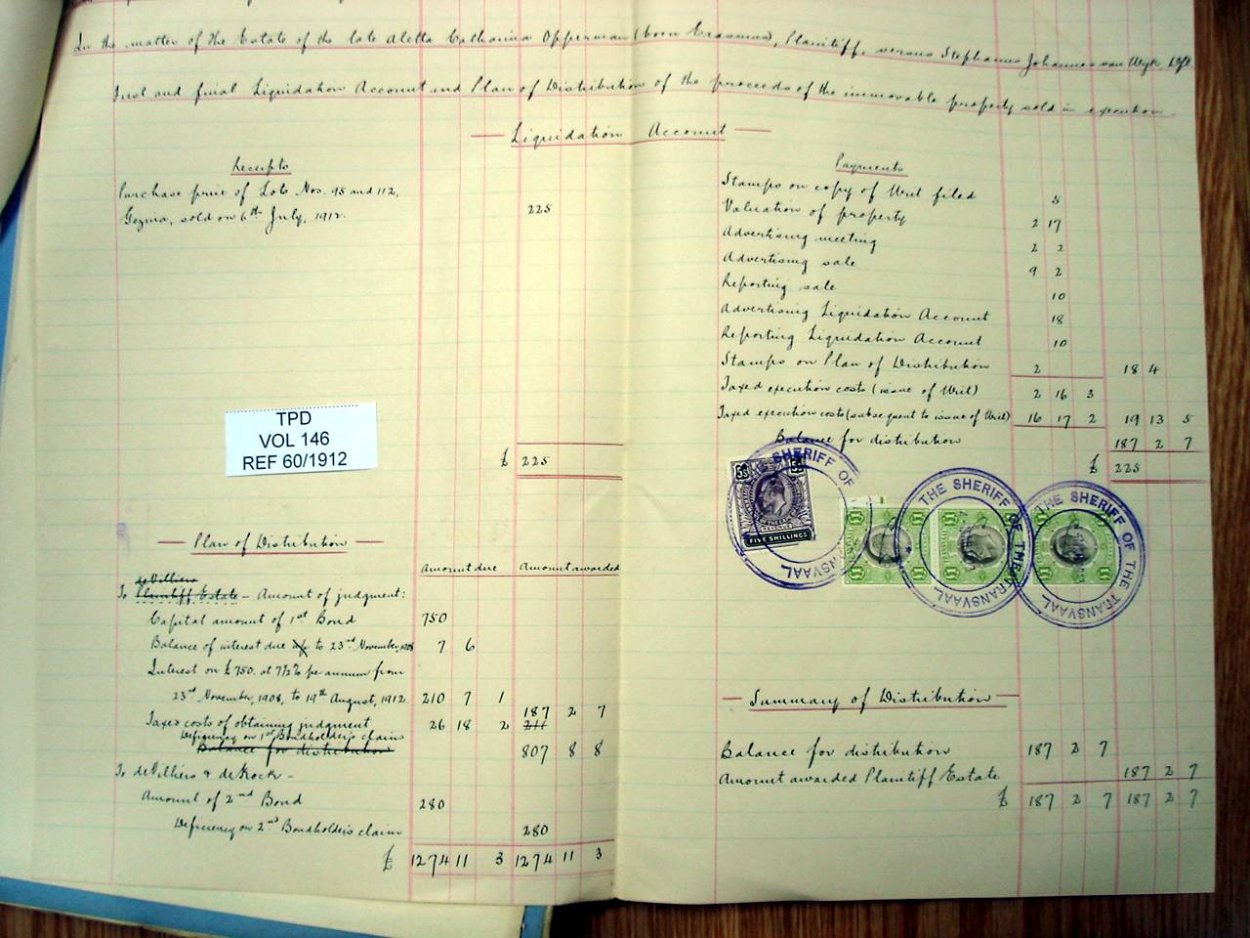 In the matter of the Estate of the late Aletta Catharina Opperman (born Erasmus), Plaintiff, versus Stephanus Johannes van Wyk, Deft
First and final Liquidation Account and Plan of Distribution of the proceeds of the immovable property sold in execution.
Liquidation Account
Receipts
Purchase price of Lots Nos. 95 and 112,
Gezina, sold on 6th July, 1912. 225
£ 225
TPD
VOL 146
REF 60/1912
Payments
Stamps on copy of Writ filed 5
Valuation of property 2 17
Advertising meeting 2 2
Advertising sale 9 2
Reporting sale 10
Advertising Liquidation Account 18
Reporting Liquidation Account 10
Stamps on Plan of Distribution 2 18 4
Taxed execution costs (issue of Writ) 2 16 3
Taxed execution costs (subsequent to issue of Writ) 16 17 2 19 13 5
Balance for distribution 187 2 7
£ 225
THE SHERIFF OF THE TRANSVAAL
5s 5s
FIVE SHILLINGS
£1 £1
THE SHERIFF OF THE TRANSVAAL
£1 £1
THE SHERIFF OF THE TRANSVAAL
£1 £1
Plan of Distribution
Amount due Amount awarded
de Villiers
To Plaintiff Estate - Amount of judgment:
Capital amount of 1st Bond 750
Balance of interest due to 23rd November, 1908 7 6
Interest on £750. at 7½% per annum from
23rd November, 1908, to 19th August, 1912 210 7 1
187 2 7
Taxed costs of obtaining judgment 26 18 2 211
Deficiency on 1st Bondholder's claim
Balance for distribution 807 8 8
To de Villiers & de Kock -
Amount of 2nd Bond 280
Deficiency on 2nd Bondholders claim 280
£ 1274 11 3 1274 11 3
Summary of Distribution
Balance for distribution 187 2 7
Amount awarded Plaintiff Estate 187 2 7
£ 187 2 7 187 2 7